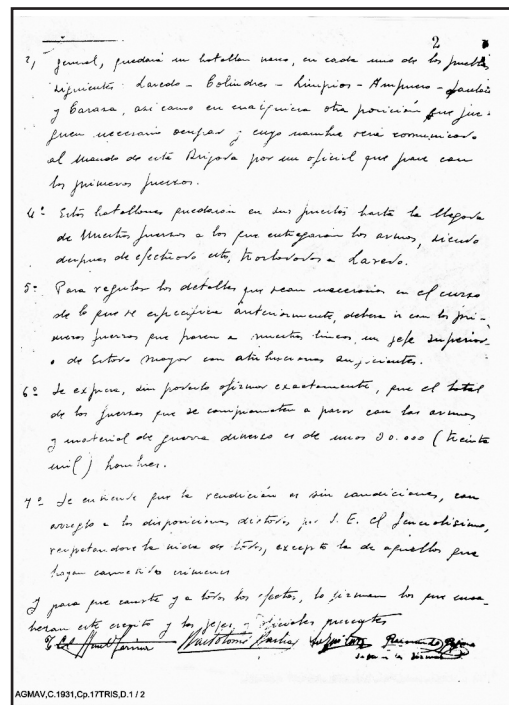 2
general, quedará un batallón vasco, en cada uno de los pueblos
siguientes: Laredo - Colindres - Limpias - Ampuero -
y Carasa, asi como en cualquiera otra posición que juz-
guen necesario ocupar y cuyo nombre será comunicado
al Mando de esta Brigada por un oficial que pase con
las primeras fuerzas.
4º- Estos batallones quedarán en sus puestos hasta la llegada
de Nuestras fuerzas a los que entregarán las armas, siendo
despues de efectuado esto, trasladados a Laredo.
5º- Para regular los detalles que sean necesarios en el curso
de lo que se especifica anteriormente, debera ir con las pri-
meras fuerzas que pasen a nuestras lineas, un jefe superior
de Estado Mayor con atribuciones suficientes.
6º Se expresa, sin poderlo afirmar exactamente, que el total
de las fuerzas que se comprometen a pasar con las armas
y material de guerra diverso es de unos 30.000 (treinta
mil) hombres.
7º Se entiende que la rendición es sin condiciones, con
arreglo a las disposiciones dictadas por S. E. el Generalisimo,
respetandose la vida de todos, excepto la de aquellos que
hayan cometido crimenes
Y para que conste y a todos los efectos, lo firman los que
este escrito y los jefes y oficiales presentes
AGMAV,C.1931,Cp.17TRIS,D.1 / 2